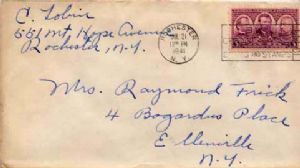 C. Tobin
551 Mt. Hope Avenue
Rochester, N.Y.
ROCHESTER
1941
N.Y.
Mrs. Raymond Frick
4 Bogardus Place
Ellenville
N.Y.